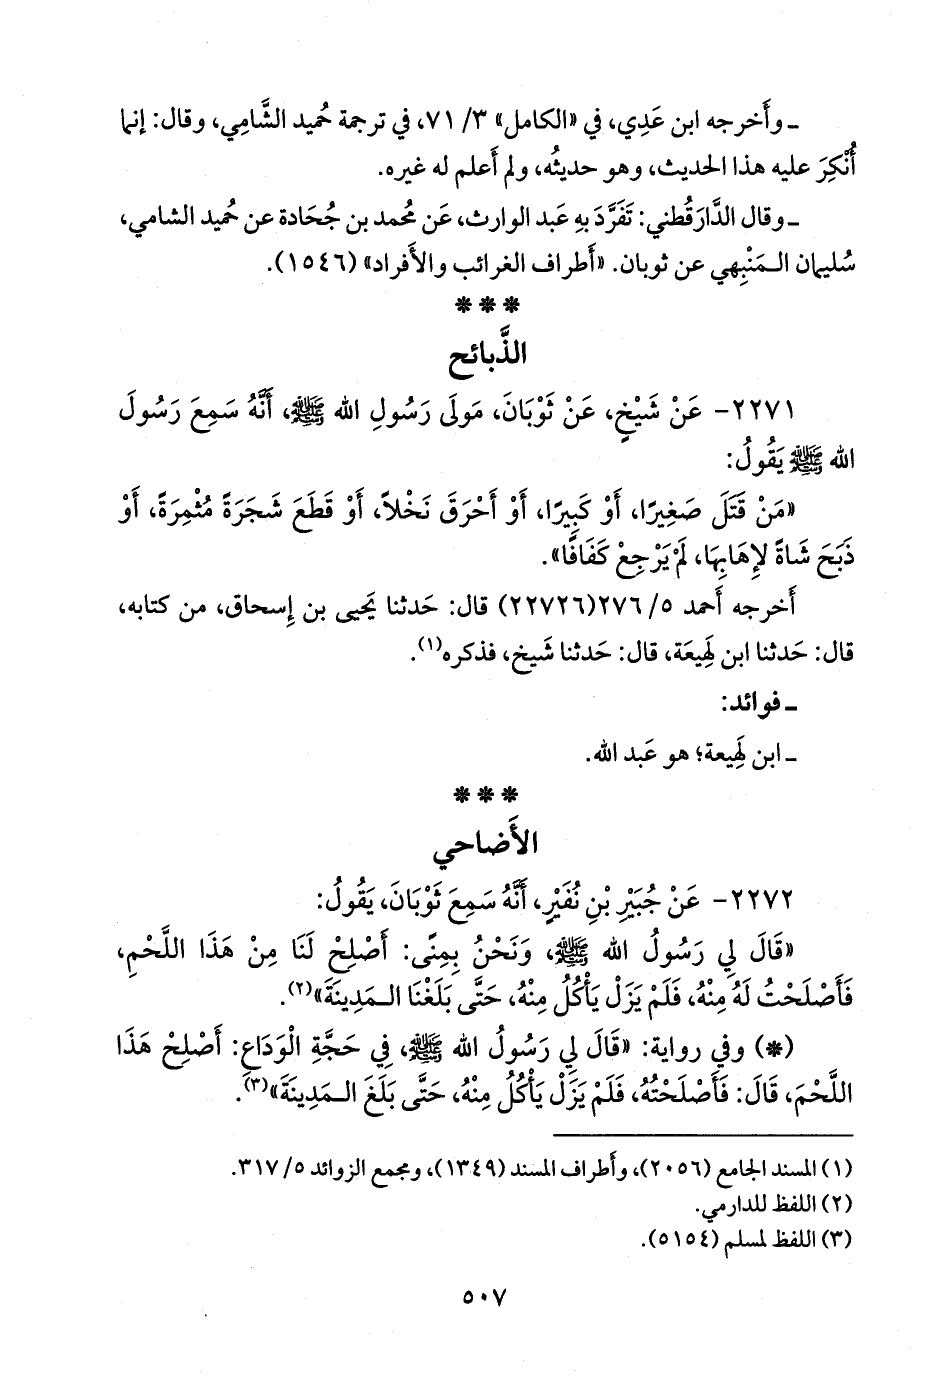 ـ وأَخرجه ابن عَدِي، في «الكامل» ٣/ ٧١، في ترجمة حُميد الشَّامِي، وقال: إنما
أُنْكِرَ عليه هذا الحديث، وهو حديثُه، ولم أَعلم له غيره.
ـ وقال الدَّارَقُطني: تَفَرَّدَ بِهِ عَبد الوارث، عَن مُحمد بن جُحَادة عن حُميد الشامي،
سُليمان الـمَنْبِهي عن ثوبان. «أَطراف الغرائب والأَفراد» (١٥٤٦).
* * *
الذَّبائح
٢٢٧١- عَنْ شَيْخٍ، عَنْ ثَوْبَانَ، مَولَى رَسُولِ الله ﷺ، أَنَّهُ سَمِعَ رَسُولَ
الله ﷺ يَقُولُ:
«مَنْ قَتَلَ صَغِيرًا، أَوْ كَبِيرًا، أَوْ أَحْرَقَ نَخْلاً، أَوْ قَطَعَ شَجَرَةً مُثْمِرَةً، أَوْ
ذَبَحَ شَاةً لإِهَابِهَا، لَمْ يَرْجِعْ كَفَافًا».
أَخرجه أَحمد ٥/ ٢٧٦(٢٢٧٢٦) قال: حَدثنا يَحيى بن إِسحاق، من كتابه،
قال: حَدثنا ابن لَهِيعَة، قال: حَدثنا شَيخ، فذكره(١).
ـ فوائد:
ـ ابن لَهِيعة؛ هو عَبد الله.
* * *
الأَضاحي
٢٢٧٢- عَنْ جُبَيْرِ بْنِ نُفَيْرٍ، أَنَّهُ سَمِعَ ثَوْبَانَ، يَقُولُ:
«قَالَ لِي رَسُولُ الله ﷺ، وَنَحْنُ بِمِنًى: أَصْلِحْ لَنَا مِنْ هَذَا اللَّحْمِ،
فَأَصْلَحْتُ لَهُ مِنْهُ، فَلَمْ يَزَلْ يَأْكُلُ مِنْهُ، حَتَّى بَلَغْنَا الـمَدِينَةَ»(٢).
(*) وفي رواية: «قَالَ لِي رَسُولُ الله ﷺ، فِي حَجَّةِ الْوَدَاعِ: أَصْلِحْ هَذَا
اللَّحْمَ، قَالَ: فَأَصْلَحْتُهُ، فَلَمْ يَزَلْ يَأْكُلُ مِنْهُ، حَتَّى بَلَغَ الـمَدِينَةَ»(٣).
(١) المسند الجامع (٢٠٥٦)، وأَطراف المسند (١٣٤٩)، ومجمع الزوائد ٥/ ٣١٧.
(٢) اللفظ للدارمي.
(٣) اللفظ لمسلم (٥١٥٤).
٥٠٧